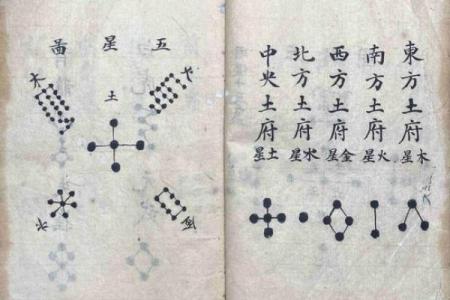 東方土府木星
南方土府火星
西方土府金星
北方土府水星
中央土府土星
五星啚
火
木
土
金
水